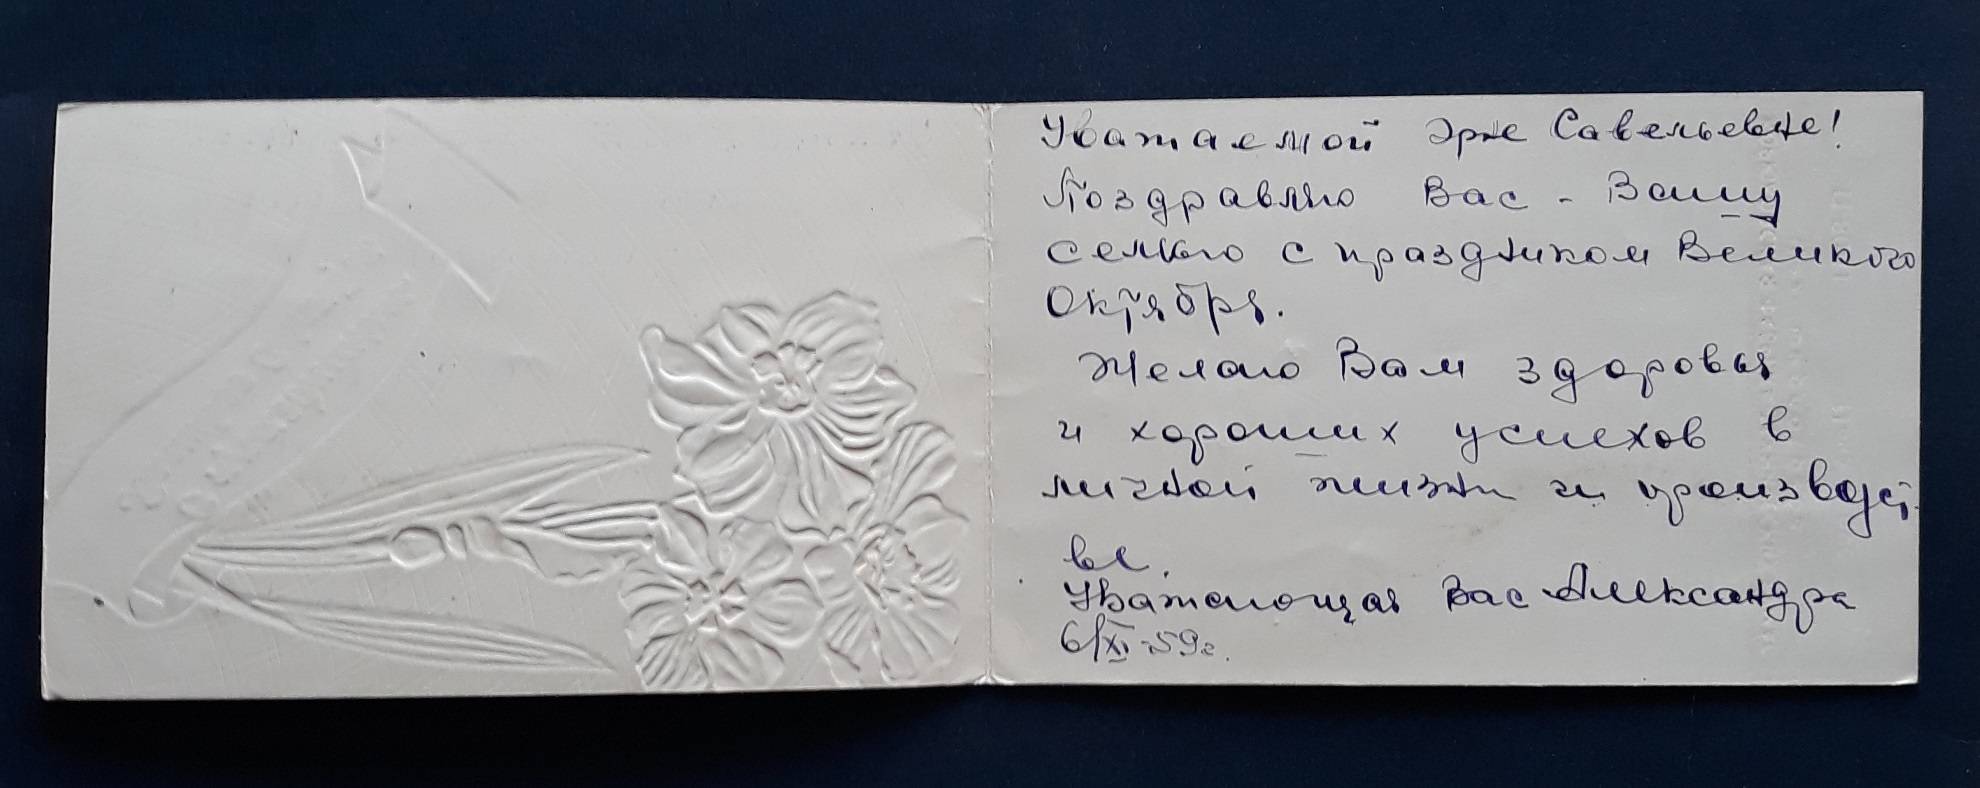 Уважаемой Эре Савельевне!
Поздравляю Вас - Вашу
семью с праздником Великого
Октября.
Желаю Вам здоровья
и хороших успехов в
личной жизни и производст-
ве.
Уважающая Вас Александра
6/XI-59г.